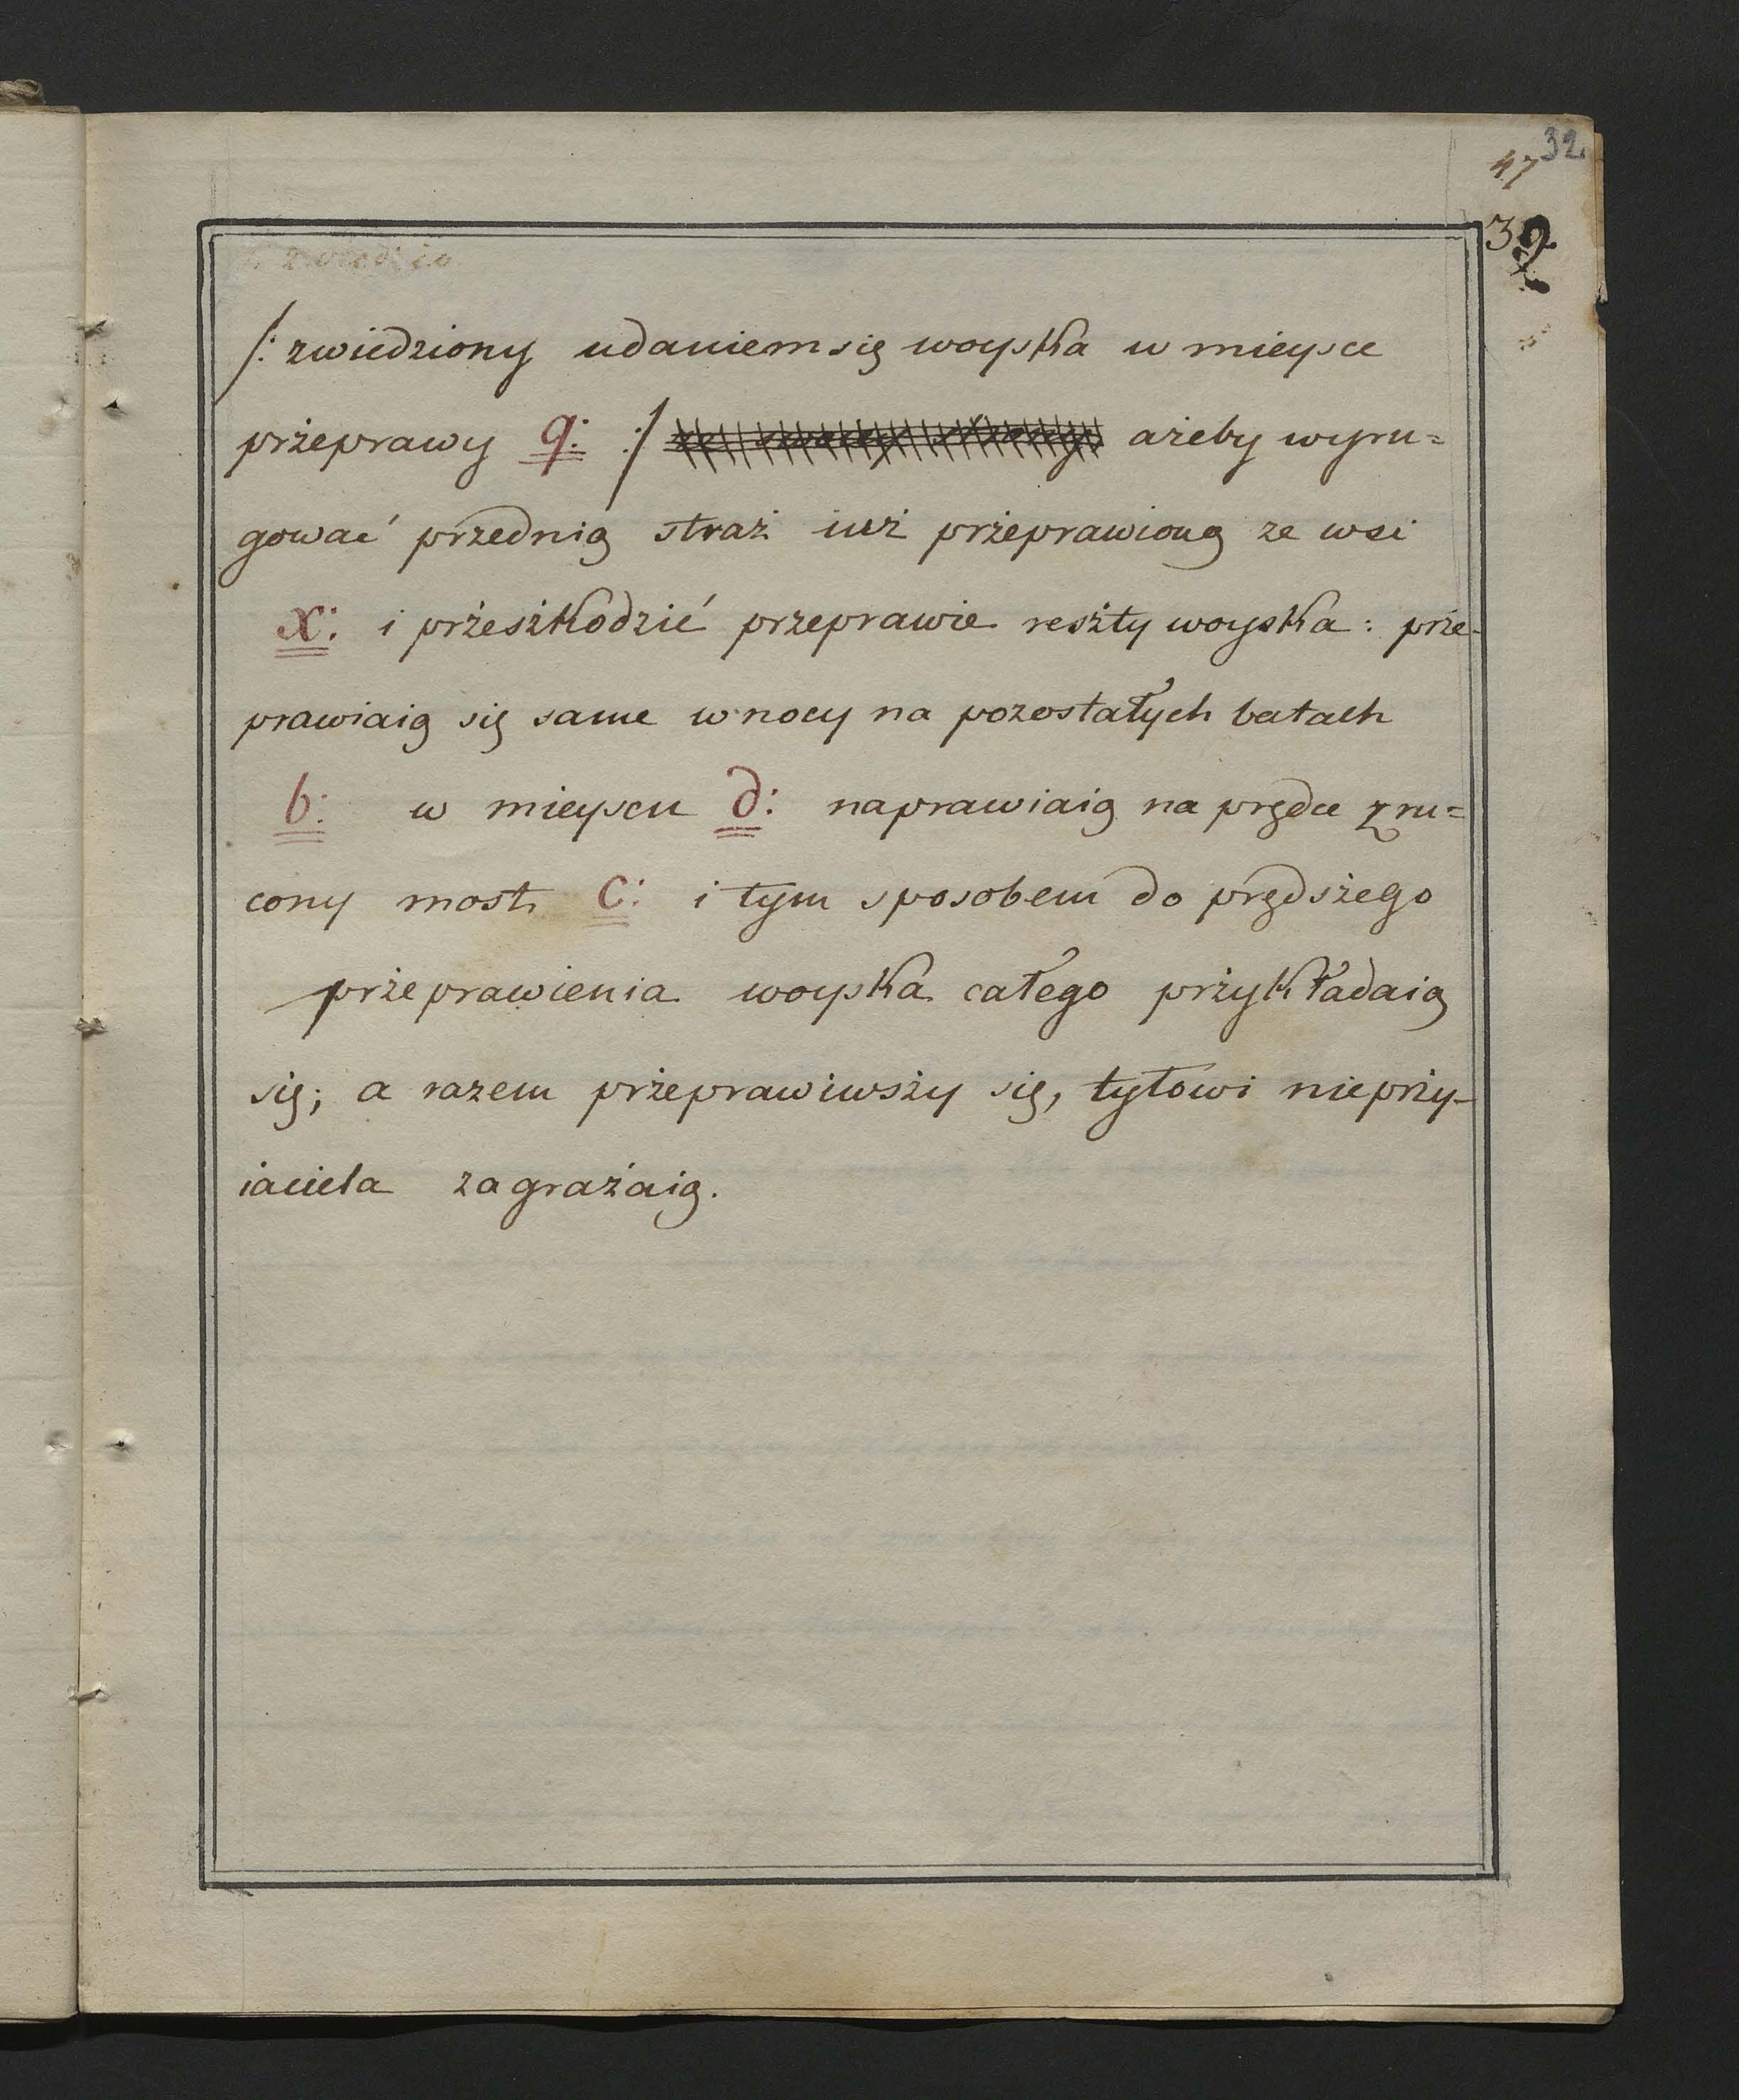 32.
47
32
/: zwiedziony udaniem się woyska w mieysce
prżeprawy q: :/ ażeby wyru=
gować przednią straż iuż prżeprawioną ze wsi
x: i prżeszkodzić przeprawie reszty woyska: prże-
prawiaią się same w nocy na pozostałych batach
b: w mieyscu d: naprawiaią na prędce zru=
cony most c: i tym sposobem do prędszego
prżeprawienia woyska całego prżykładaią
się; a razem prżeprawiwszy się, tyłowi nieprży-
iaciela zagrażaią.